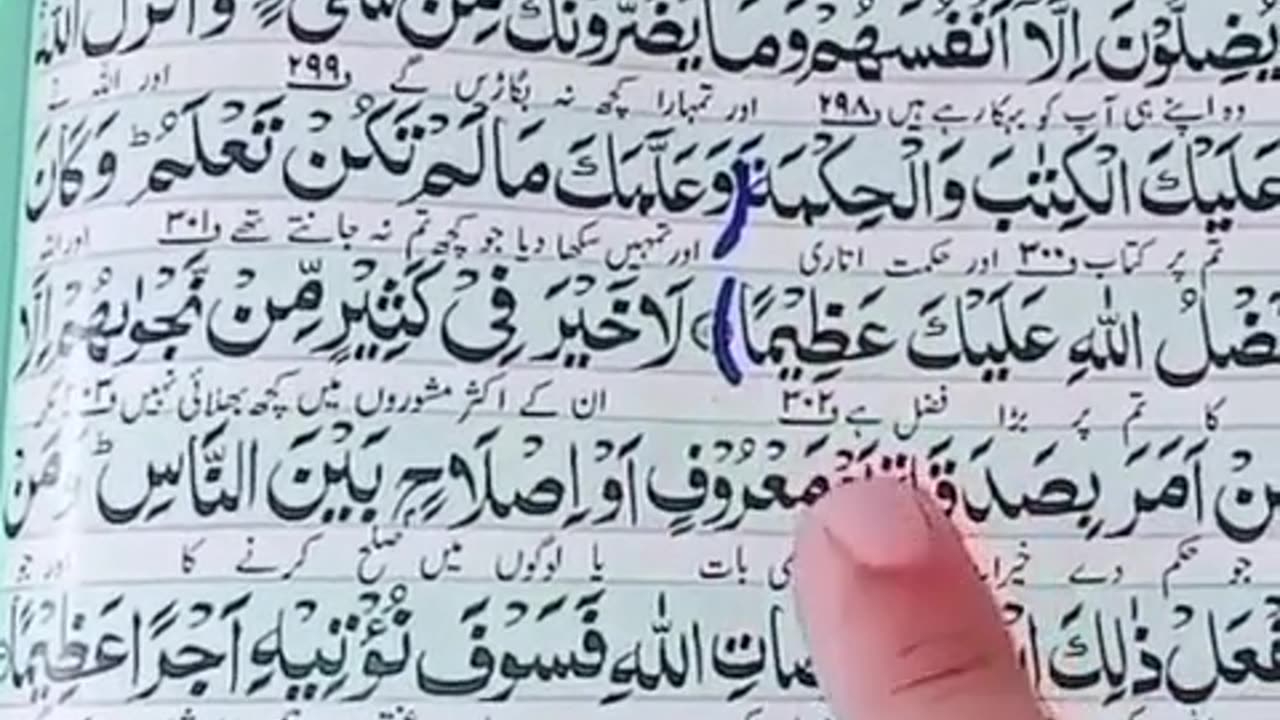 يُضِلُّوْنَ اِلَّاۤ اَنْفُسَهُمْ وَمَا يَضُرُّوْنَكَ مِنْ شَیْءٍ وَاَنْزَلَ اللّٰهُ
وہ اپنے ہی آپ کو بہکا رہے ہیں ف۲۹۸ اور تمہارا کچھ نہ بگاڑیں گے ف۲۹۹ اور اللہ نے
عَلَيْكَ الْكِتٰبَ وَالْحِكْمَةَ وَعَلَّمَكَ مَا لَمْ تَكُنْ تَعْلَمُ ؕ وَكَانَ
تم پر کتاب ف۳۰۰ اور حکمت اتاری اور تمہیں سکھا دیا جو کچھ تم نہ جانتے تھے ف۳۰۱ اور اللہ
فَضْلُ اللّٰهِ عَلَيْكَ عَظِيْمًا لَا خَيْرَ فِیْ كَثِيْرٍ مِّنْ نَّجْوٰىهُمْ اِلَّا
کا تم پر بڑا فضل ہے ف۳۰۲ ان کے اکثر مشوروں میں کچھ بھلائی نہیں ف۳۰۳ مگر
مَنْ اَمَرَ بِصَدَقَةٍ اَوْ مَعْرُوْفٍ اَوْ اِصْلَاحٍۭ بَيْنَ النَّاسِ ؕ وَمَنْ
جو حکم دے بات یا لوگوں میں صلح کرنے کا اور جو
يَّفْعَلْ ذٰلِكَ اللّٰهِ فَسَوْفَ نُؤْتِيْهِ اَجْرًا عَظِيْمًا